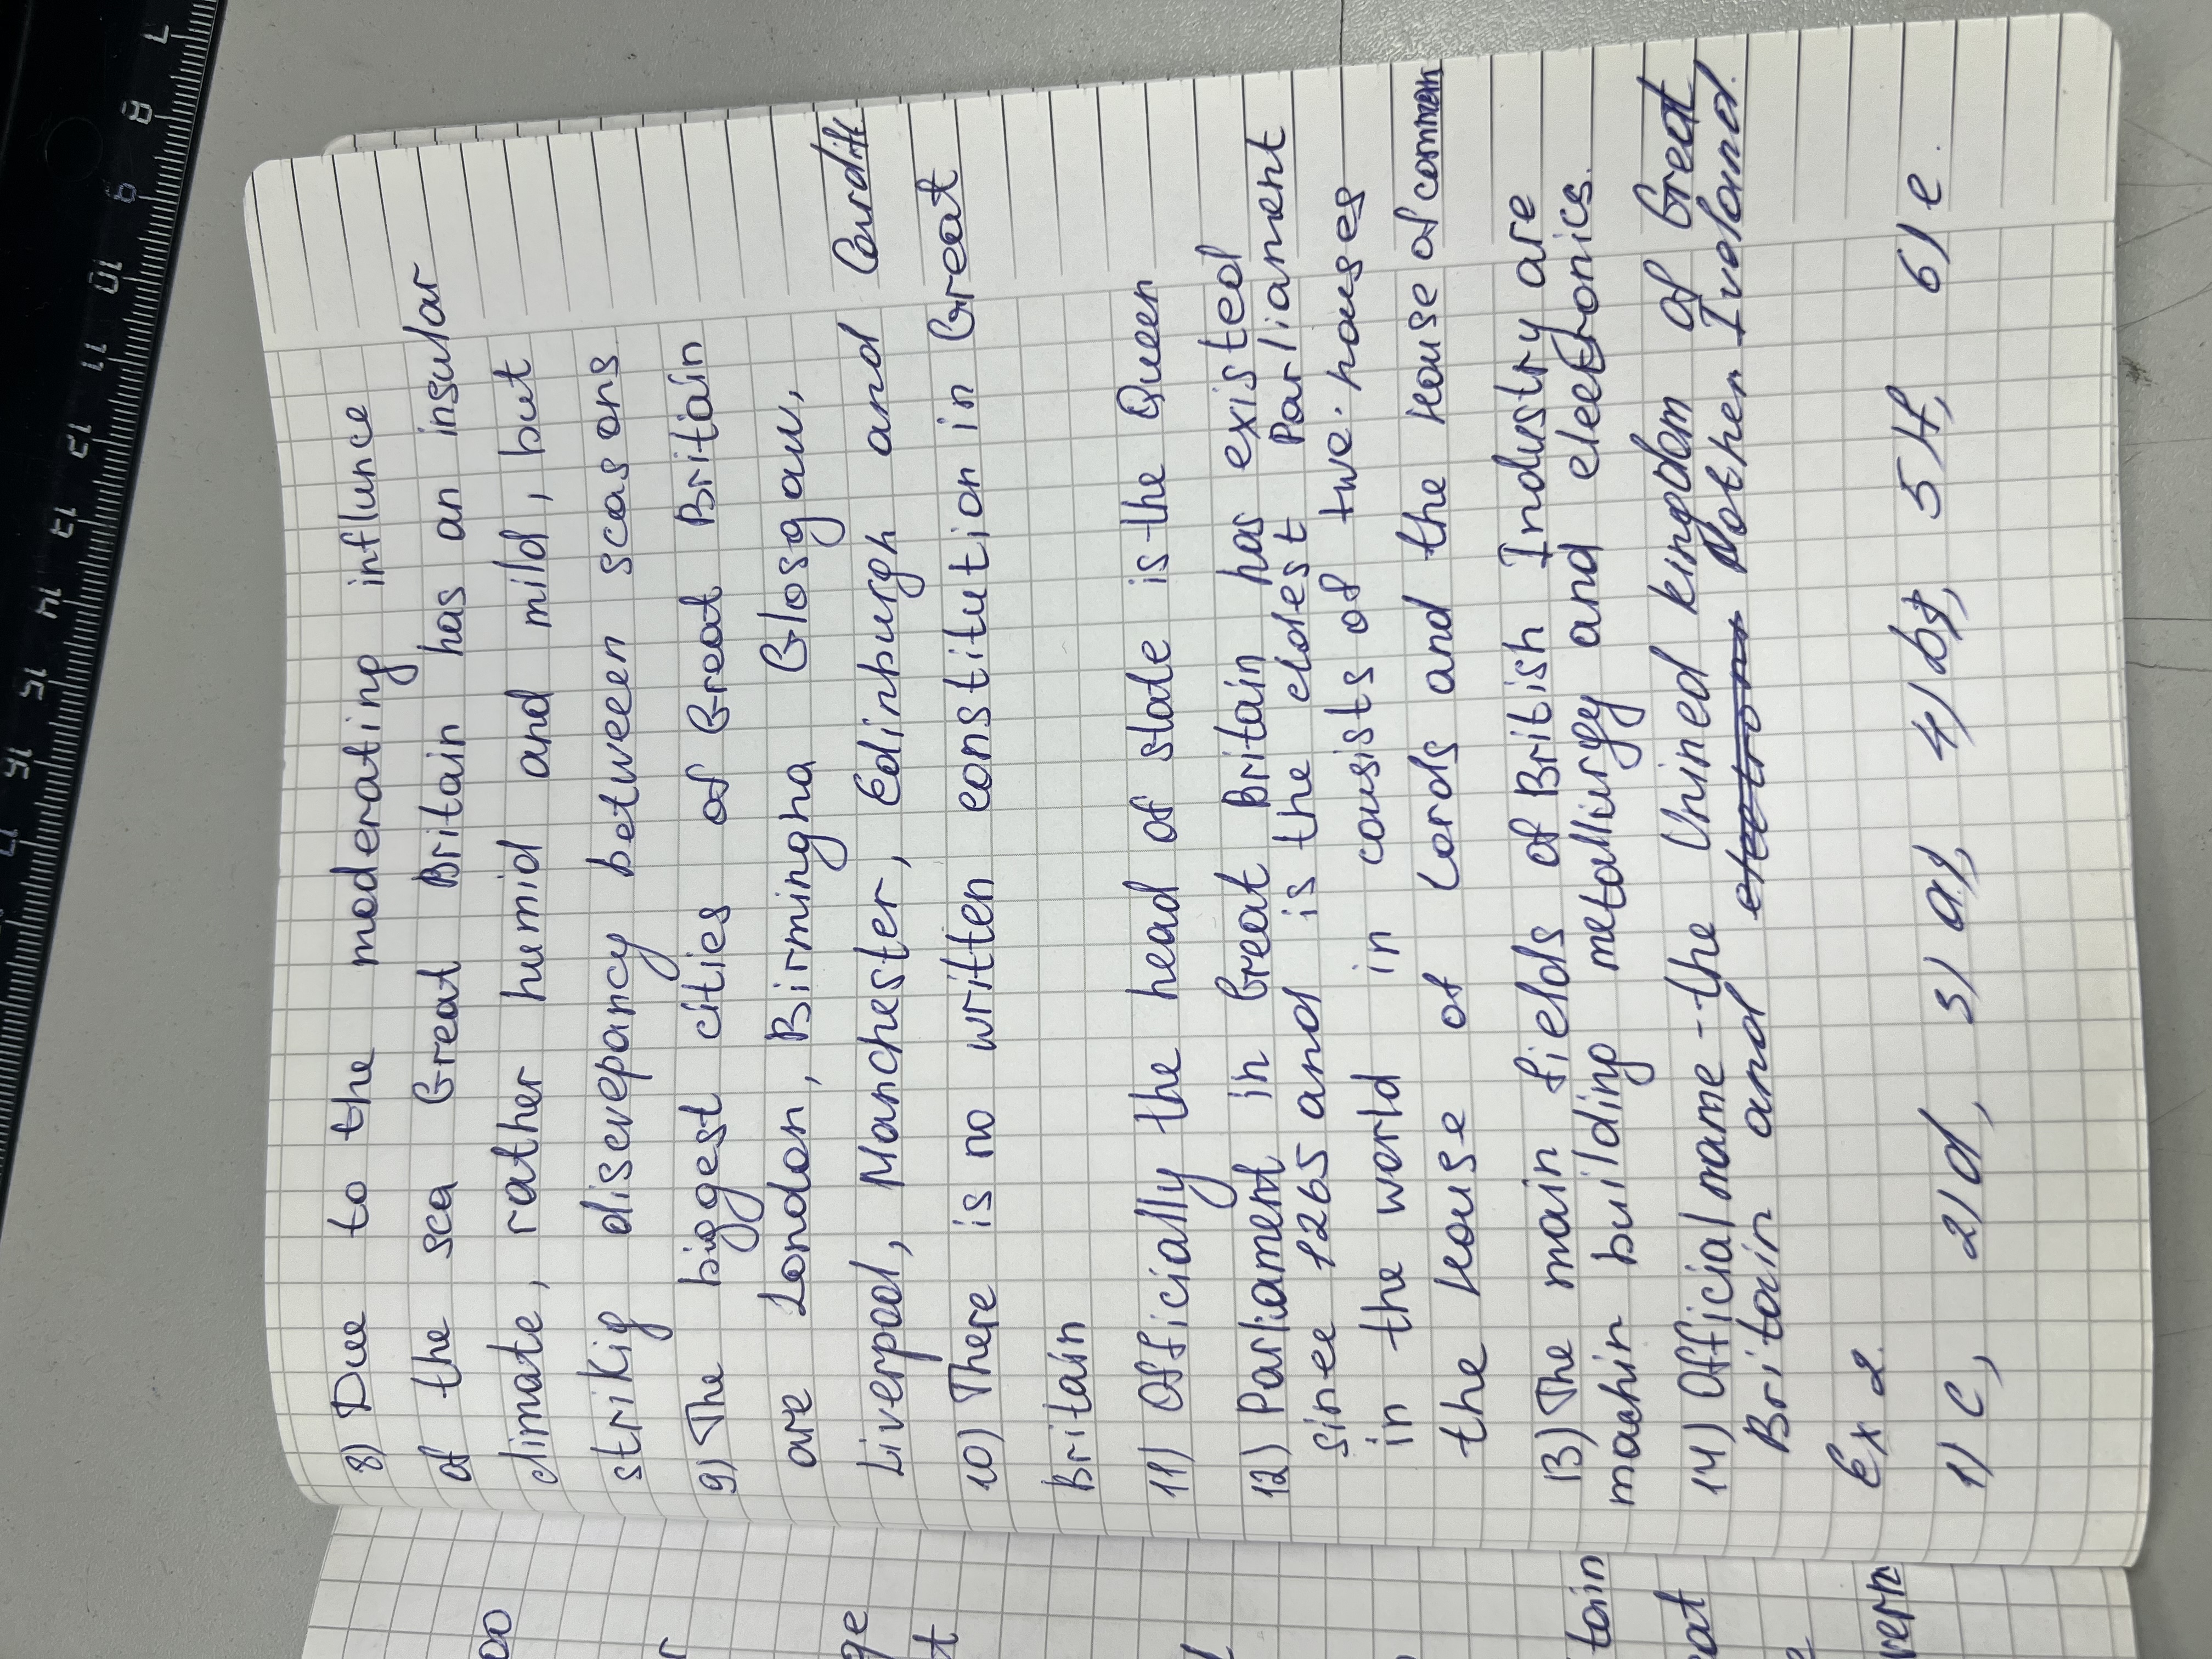 8) Due to the moderating influnce
of the sea Great Britain has an insular
climate, rather humid and mild, but
strikig discrepancy between seasons
9) The biggest cities of Great Britain
are London, Birmingha Glosgaw,
Liverpool, Manchester, Edinburgh and Cardiff
10) There is no written constitution in Great
Britain
11) Officially the head of state is the Queen
12) Parliament in Great Britain has existed
since 1265 and is the eldest Parliament
in the world in consists of two houses
the House of Lords and the House of common
13) The main fields of British Industry are
machin building metallurgy and electronics.
14) Official name - the Unined kingdom of Great
Britain and Nothen Ireland.
Ex 2.
1) c, 2) d, 3) a), 4) b), 5 H, 6) e.
00
r
ge
t
d
tain
eat
e
vern
7 8 9 10 11 12 13 14 15 16 17